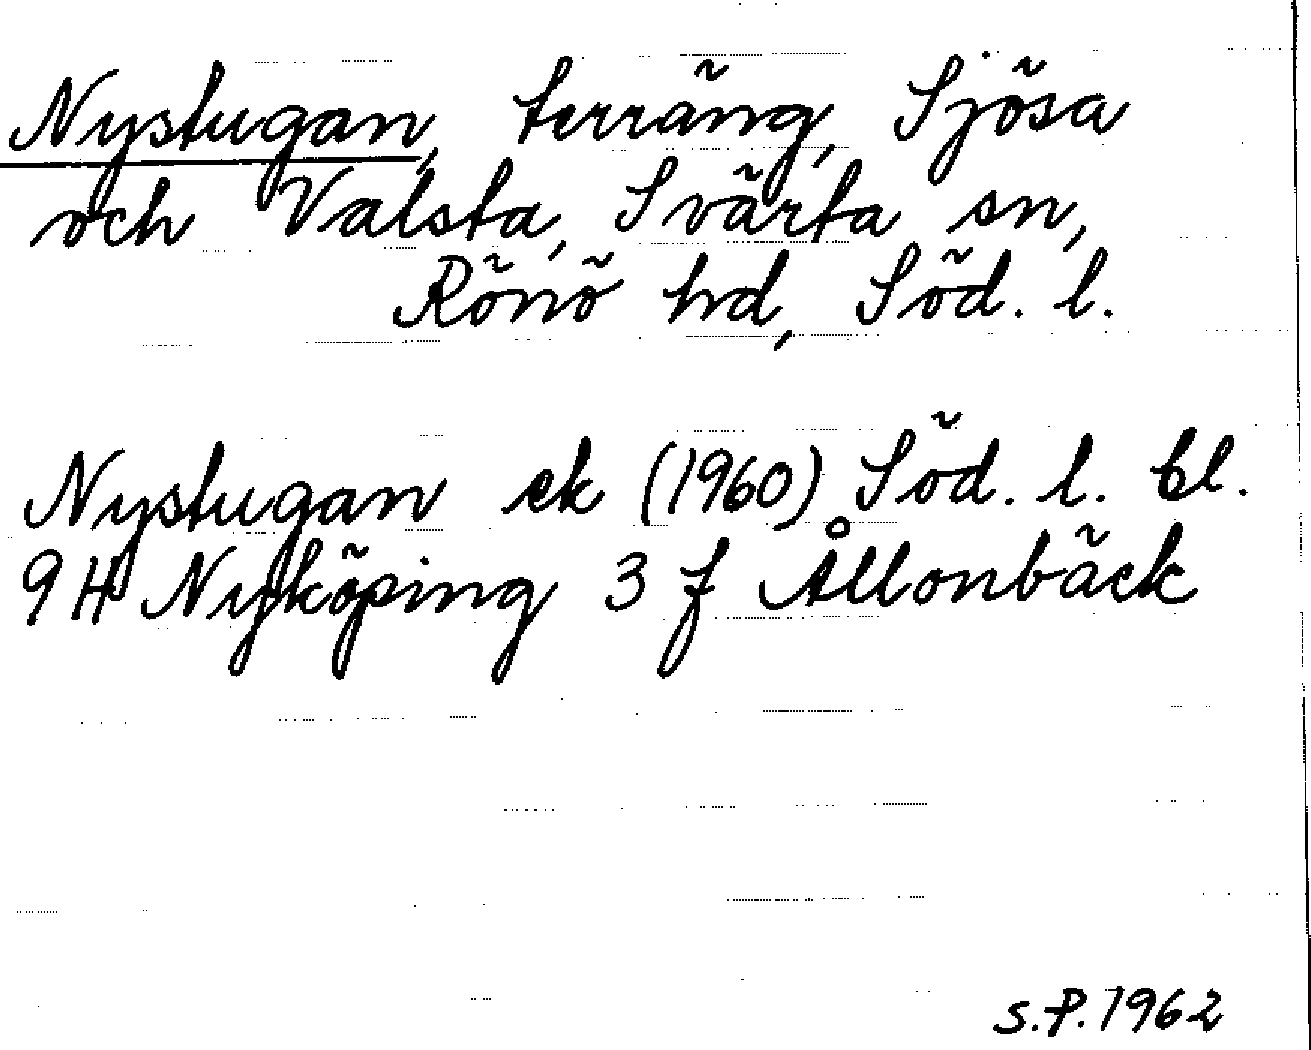 Nystugan, terräng, Sjösa
och Valsta, Svärta sn,
Rönö hd, Söd. l.
Nystugan ek (1960) Söd. l. bl.
9 H Nyköping 3 f Ållonbäck
S.P. 1962